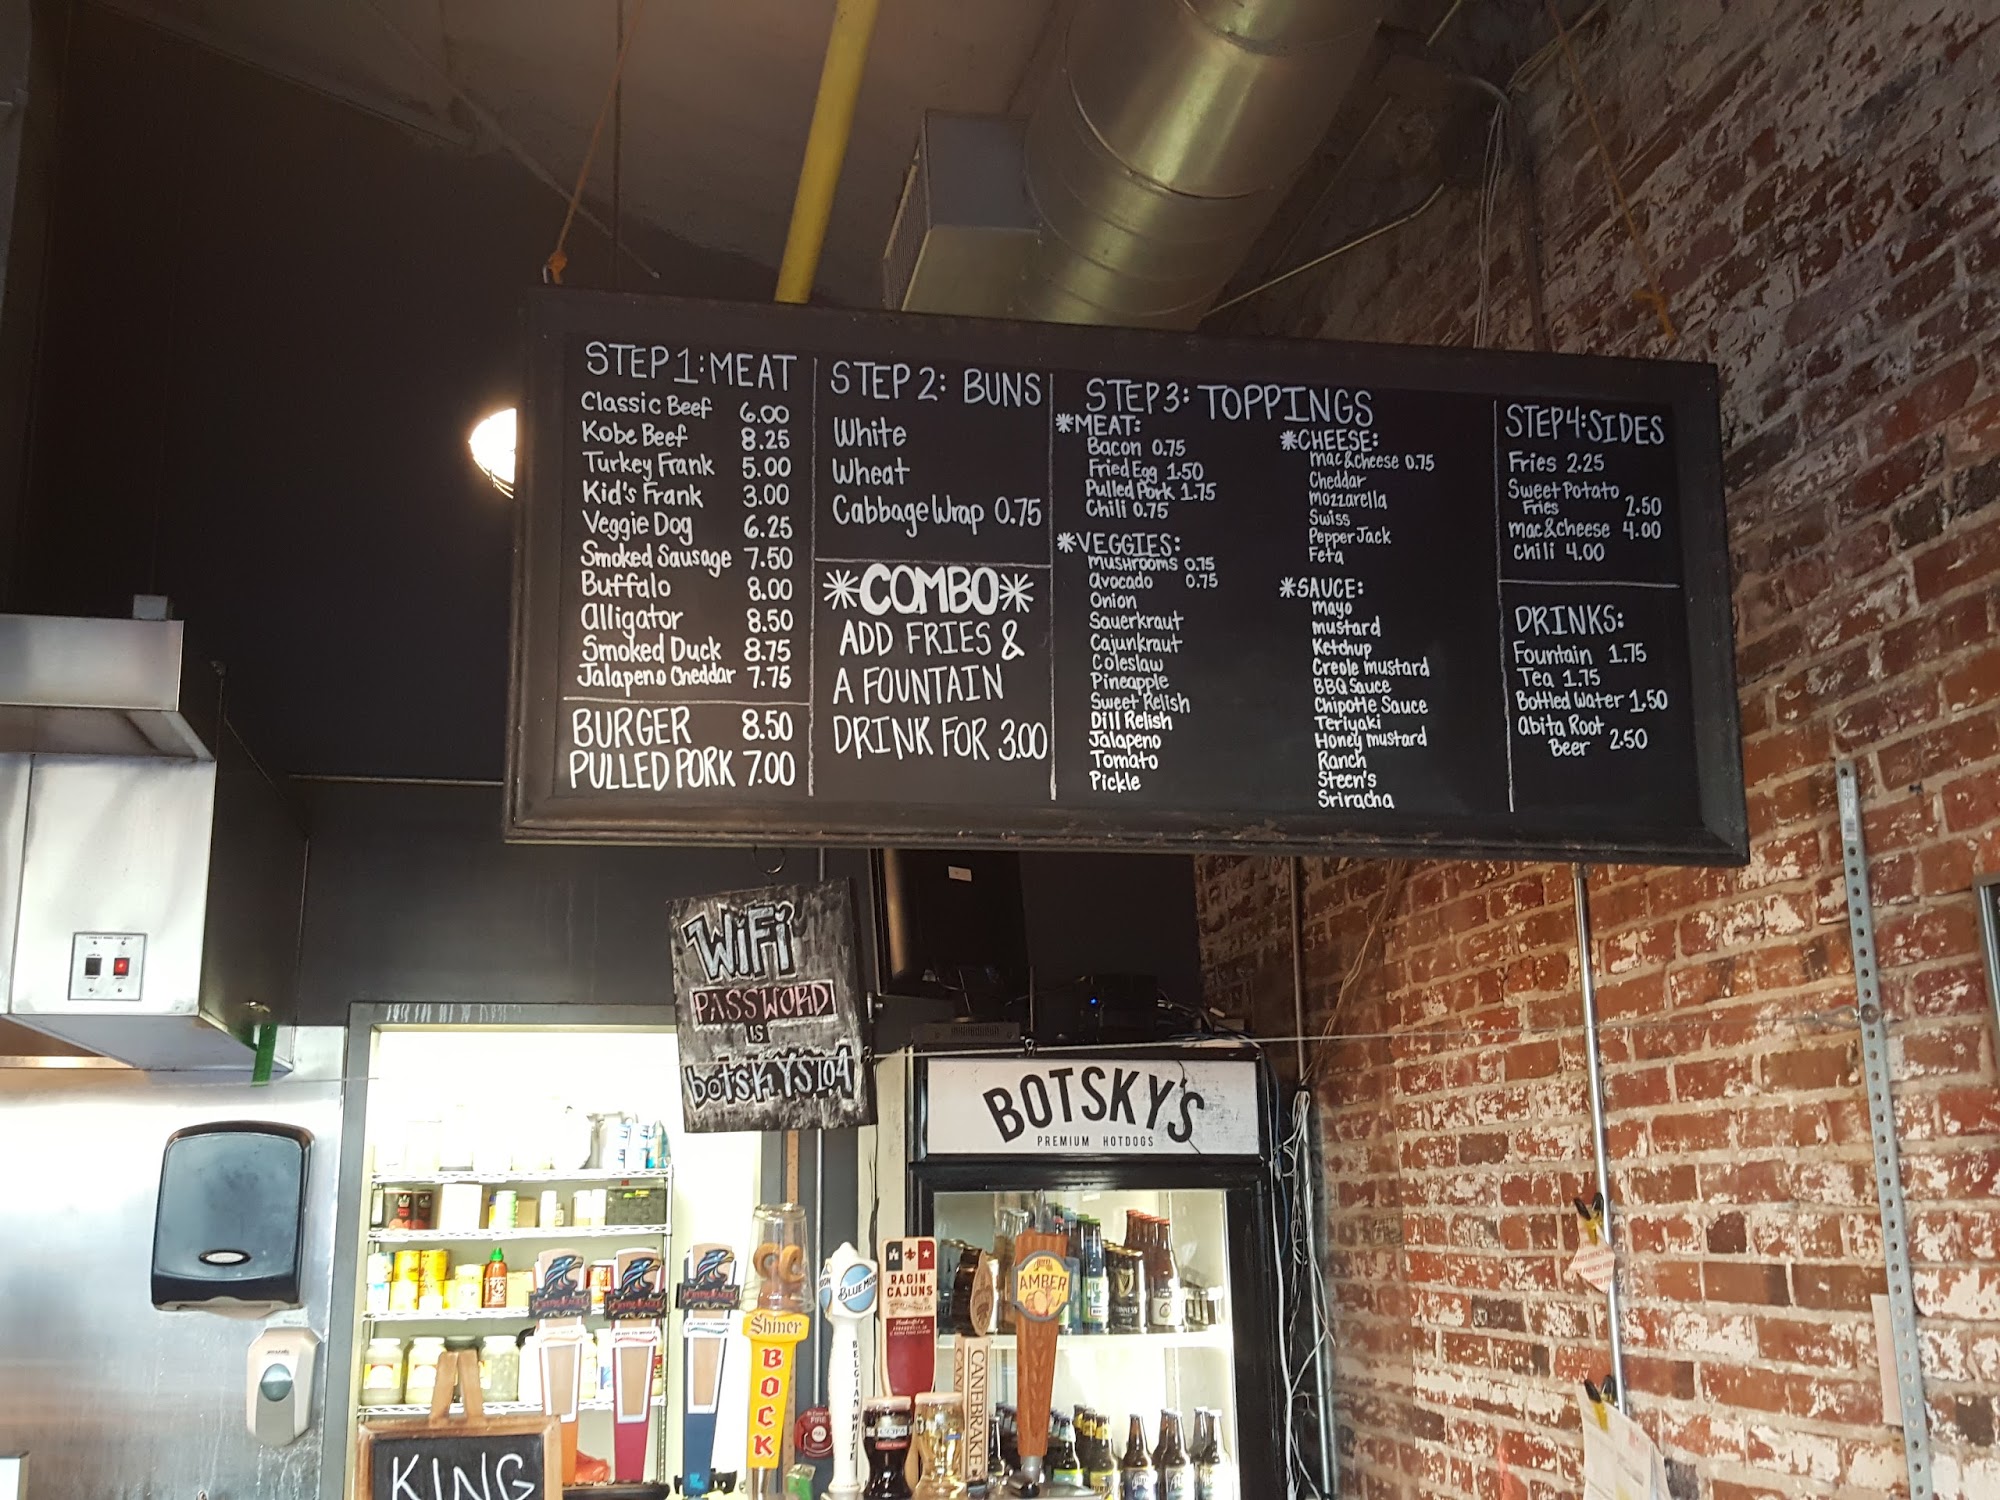 STEP 1: MEAT
Classic Beef 6.00
Kobe Beef 8.25
Turkey Frank 5.00
Kid's Frank 3.00
Veggie Dog 6.25
Smoked Sausage 7.50
Buffalo 8.00
Alligator 8.50
Smoked Duck 8.75
Jalapeno Cheddar 7.75
BURGER 8.50
PULLED PORK 7.00
STEP 2: BUNS
White
Wheat
Cabbage Wrap 0.75
*COMBO*
ADD FRIES &
A FOUNTAIN
DRINK FOR 3.00
STEP 3: TOPPINGS
*MEAT:
Bacon 0.75
Fried Egg 1.50
Pulled Pork 1.75
Chili 0.75
*VEGGIES:
Mushrooms 0.75
Avocado 0.75
Onion
Sauerkraut
Cajunkraut
Coleslaw
Pineapple
Sweet Relish
Dill Relish
Jalapeno
Tomato
Pickle
*CHEESE:
Mac & Cheese 0.75
Cheddar
Mozzarella
Swiss
Pepper Jack
Feta
*SAUCE:
Mayo
Mustard
Ketchup
Creole Mustard
BBQ Sauce
Chipotle Sauce
Teriyaki
Honey Mustard
Ranch
Steen's
Sriracha
STEP 4: SIDES
Fries 2.25
Sweet Potato
Fries 2.50
Mac & Cheese 4.00
Chili 4.00
DRINKS:
Fountain 1.75
Tea 1.75
Bottled Water 1.50
Abita Root
Beer 2.50
WiFi
PASSWORD
IS
botskYS104
BOTSKY'S
PREMIUM HOTDOGS
Shiner
BOCK
BLUE MOON
BELGIAN WHITE
RAGIN'
CAJUNS
CANEBRAKE
AMBER
FIRE
KING